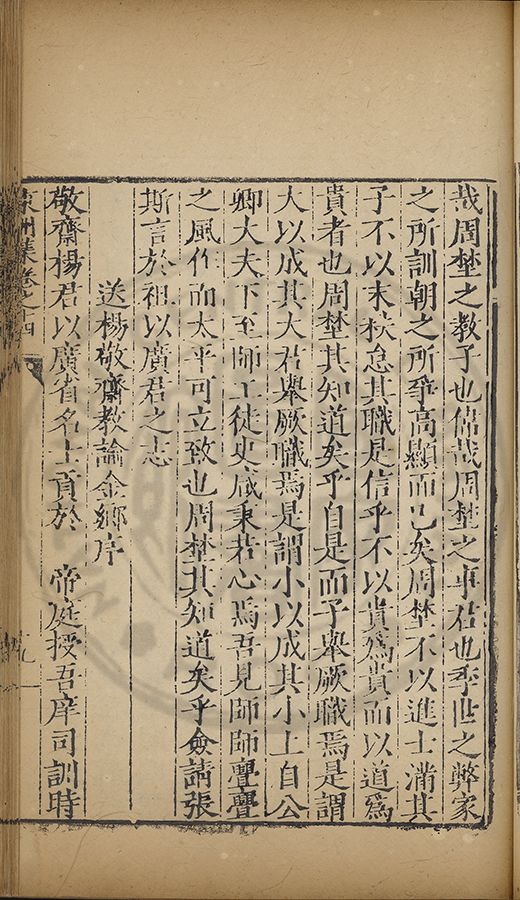 哉周埜之教子也偹哉周埜之事君也季世之獘家
之所訓朝之所爭高顯而已矣周埜不以進士滿其
子不以末秩怠其職是信乎不以貴爲貴而以道爲
貴者也周埜其知道矣乎自是而子舉厥職焉是謂
大以成其大君舉厥職焉是謂小以成其小上自公
卿大夫下至師工徒史咸秉若心焉吾見師師亹亹
之風作而太平可立致也周埜其知道矣乎僉請張
斯言於祖以廣君之志
送楊敬齋教諭金鄉序
敬齋楊君以廣省名士貢於 帝庭授吾庠司訓時
洲集卷之十四